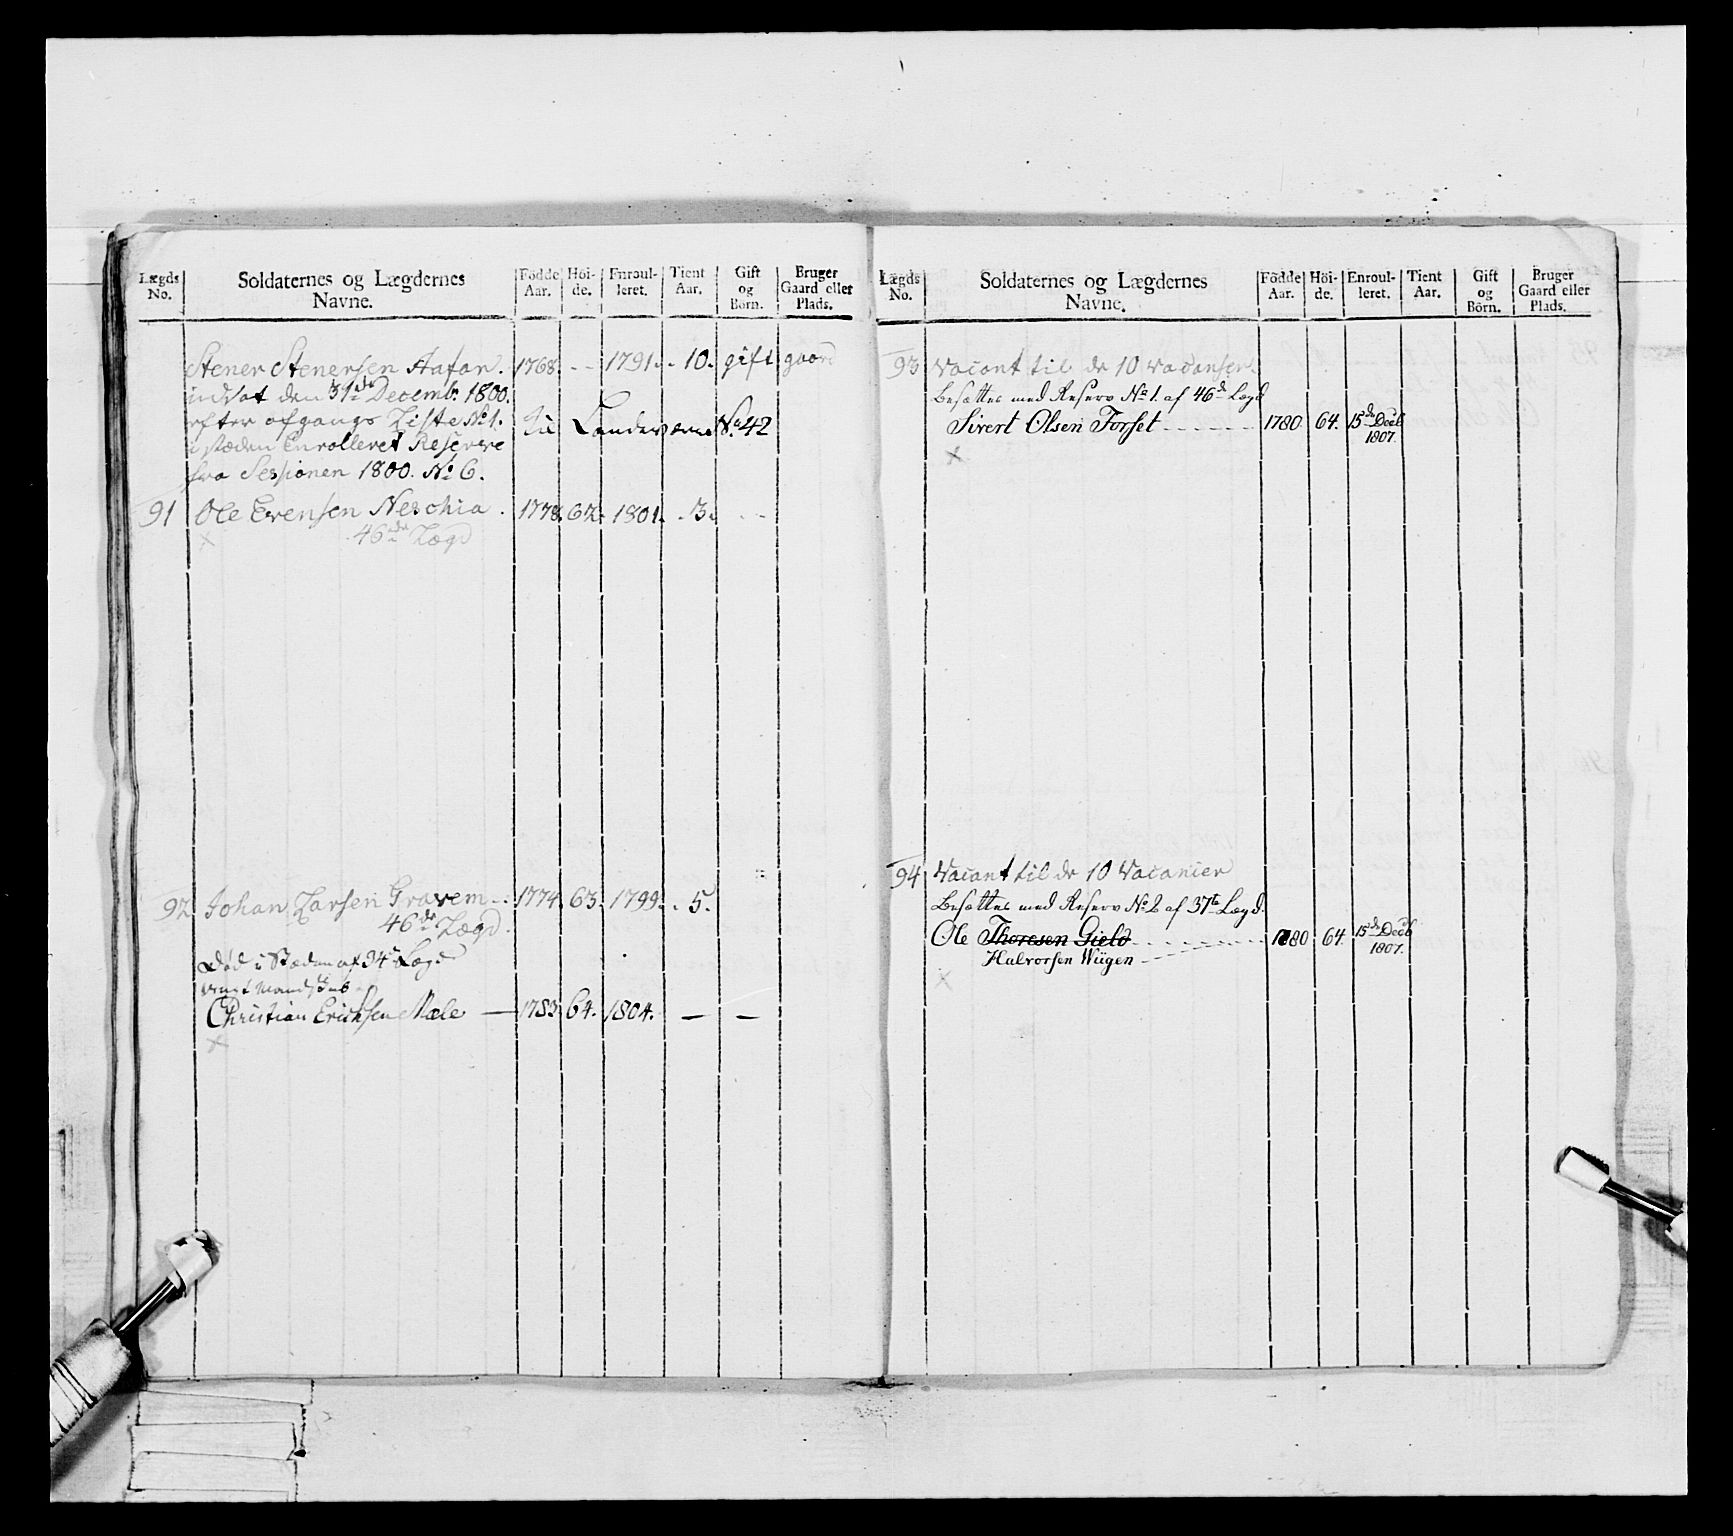 Lægds No. | Soldaternes og Lægdernes Navne. | Födde Aar. | Höi-de. | Enroul-leret. | Tient Aar. | Gift og Börn. | Bruger Gaard eller Plads.
Stener Stenersen Aafar. 1768. - - 1791. - 10. gift gaard
indsat den 31de Decemb. 1800.
efter afgangs Liste No 1. Til Landeværnet No 42
i stæden Enrolleret Reserve
fra Sessionen 1800. No 6.
91 Ole Evensen Neschia. 1778. 62. 1801. - 3. - -
× 46de Lægd
92 Johan Larsen Gravem - - 1774. 63. 1799. - 5.
46de Lægd.
Död i Stæden af 34te Lægd
ungt Mandskab
Christian Ericksen Mæle — 1783. 64. 1804. — —
×
Lægds No. | Soldaternes og Lægdernes Navne. | Födde Aar. | Höi-de. | Enroul-leret. | Tient Aar. | Gift og Börn. | Bruger Gaard eller Plads.
93 Vacant til de 10 vacanser
Besættes med Reserv No 1. af 46de Lægd
Sivert Olsen Forset - - - - - - 1780. 64. 15de Decb 1807.
×
94 Vacant til de 10 Vacancier
Besættes med Reserv No 2 af 37te Lægd.
Ole Thoresen Gield - - - - - - 1780 64. 15de Decb 1807.
Halvorsen Wiigen - - - -
×